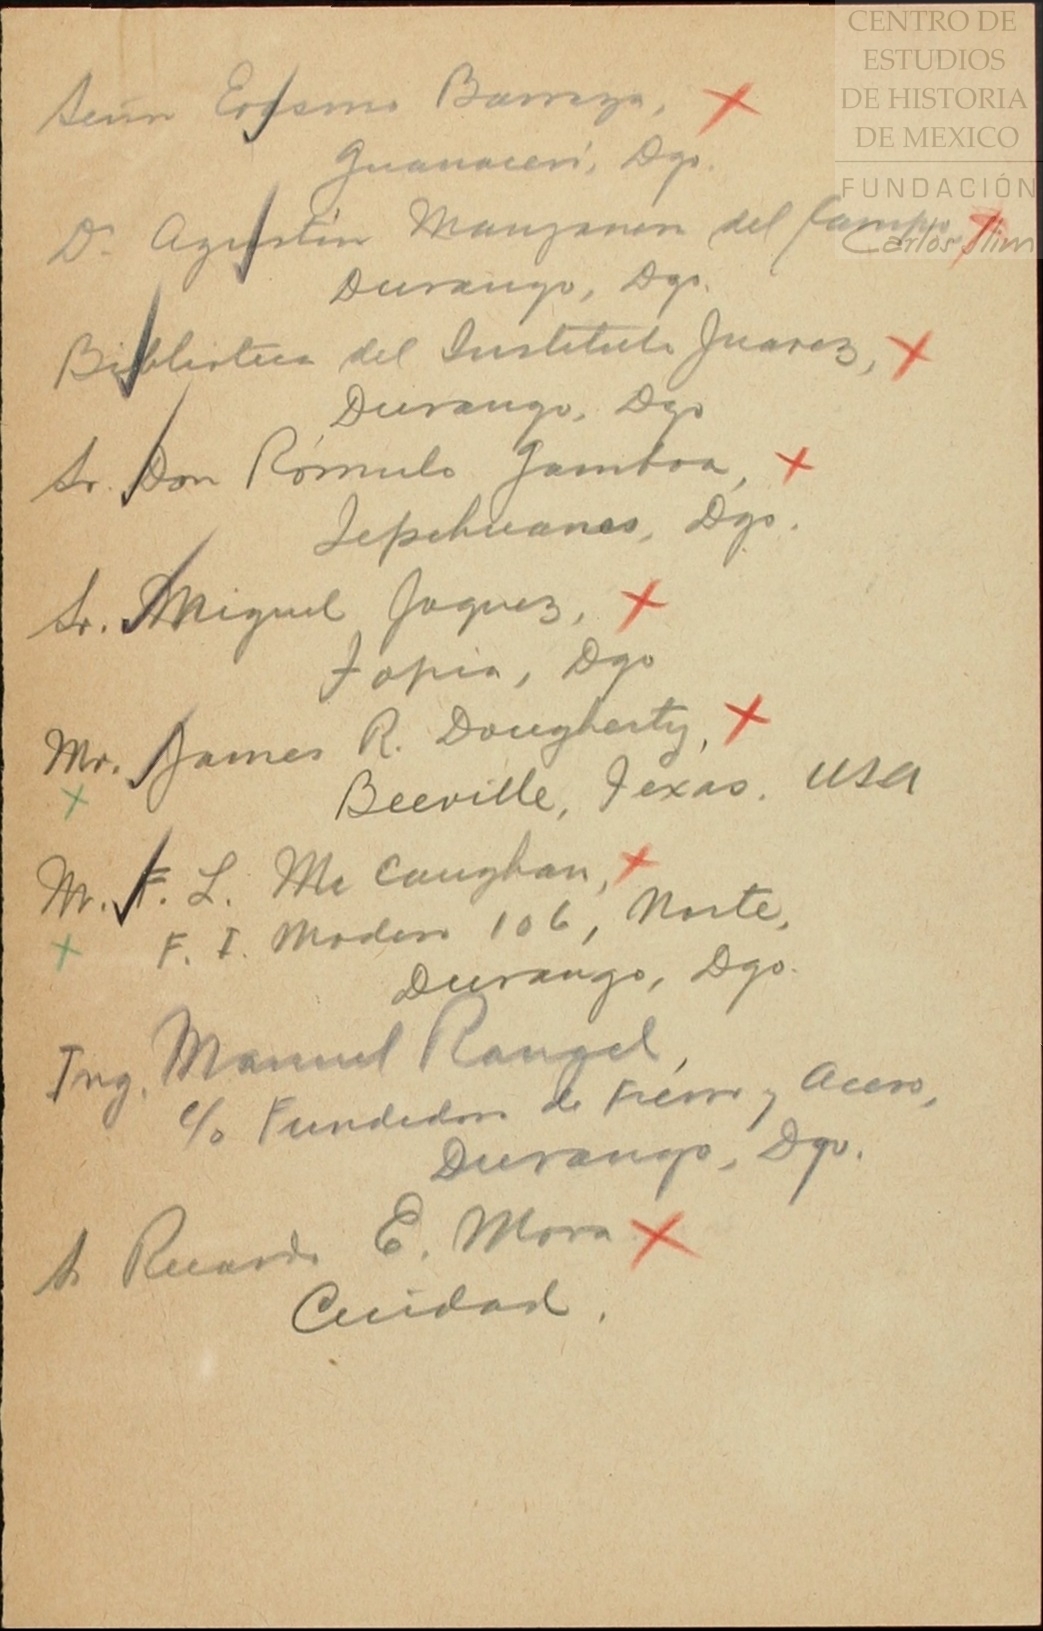 CENTRO DE
ESTUDIOS
DE HISTORIA
DE MEXICO
FUNDACIÓN
Carlos Slim
Señor Erasmo Barraza,
Guanaceví, Dgo.
Dr. Agustín Manzanera del Campo
Durango, Dgo.
Biblioteca del Instituto Juarez,
Durango, Dgo
Sr. Don Rómulo Gamboa,
Tepehuanes, Dgo.
Sr. Miguel Jaquez,
Topia, Dgo
Mr. James R. Dougherty,
Beeville, Texas. USA
Mr. F. L. Mc Caughan,
F. I. Madero 106, Norte,
Durango, Dgo.
Ing. Manuel Rangel,
c/o Fundidora de Fierro y Acero,
Durango, Dgo.
Sr Ricardo E. Mora
Ciudad.